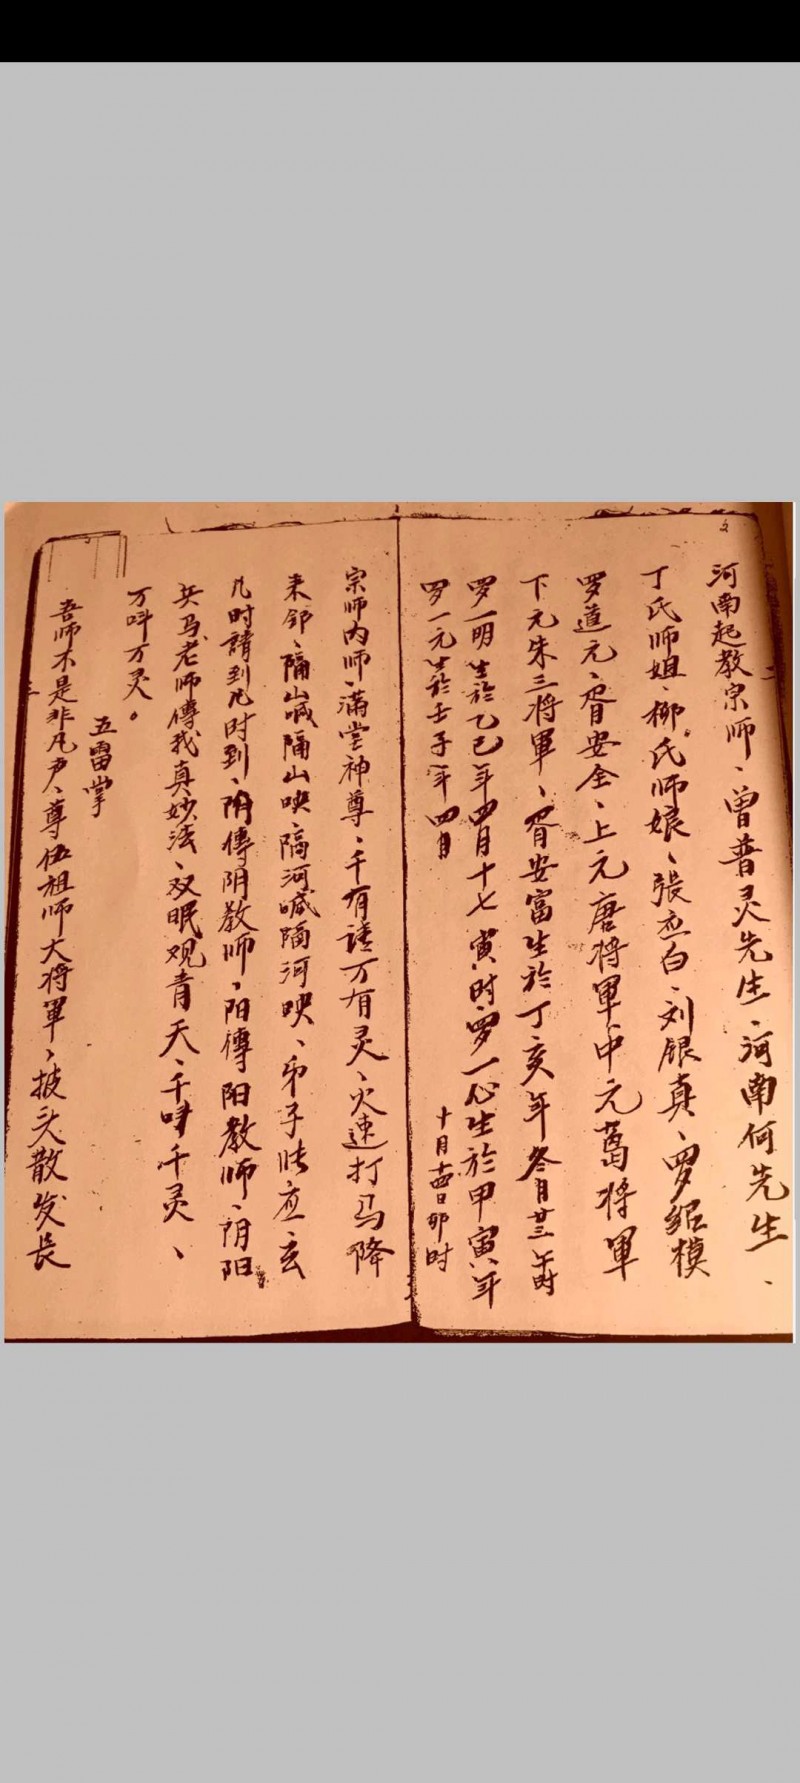 河南起教宗师、曾普灵先生、河南何先生、
丁氏师姐、柳氏师娘、張应白、刘银真、罗绍模
罗道元、胥安全、上元唐将軍中元葛将軍
下元朱三将軍、胥安富生於丁亥年冬月廿三午时
罗一明生於乙巳年四月十七寅时罗一心生於甲寅年
十月十四日卯时
罗一元生於壬子年四月
宗师内师、满堂神尊、千有万有灵、火速打马降
来邻、隔山喊隔山映、隔河喊隔河映、弟子法应玄
凡时請到凡时到、阴傳阴教师、阳傳阳教师、阴阳
兵马老师傳我真妙法、双眼观青天、千叫千灵、
万叫万灵。
五雷掌
吾师不是非凡尹、尊伍祖师大将軍、披头散发長